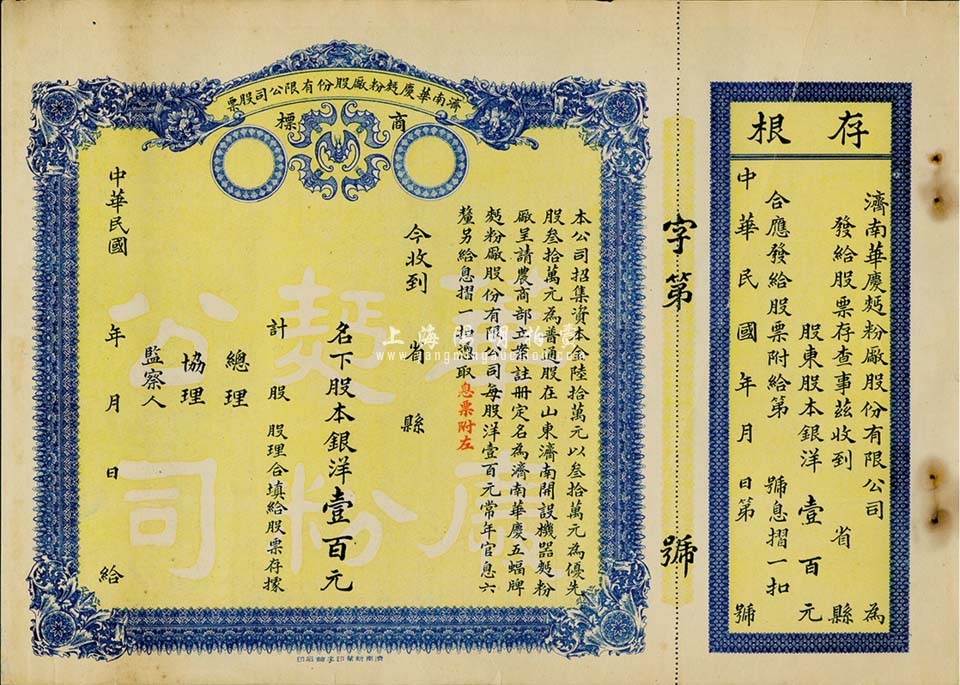 存根
濟南華慶麪粉廠股份有限公司為
發給股票存查事茲收到 省 縣
股東股本銀洋壹百元
合應發給股票附給第 號息摺一扣
中華民國 年 月 日第 號
字第 號
濟南華慶麪粉廠股份有限公司股票
商標
本公司招集資本金陸拾萬元以叁拾萬元為優先
股叁拾萬元為普通股在山東濟南開設機器麪粉
廠呈請農商部立案註册定名為濟南華慶五蝠牌
麪粉廠股份有限公司每股洋壹百元常年官息六
釐另給息摺一扣憑取息票附左
今收到 省 縣
名下股本銀洋壹百元
計 股 股理合填給股票存據
總理
協理
監察人
中華民國 年 月 日 給
華慶麪粉公司
上海陽明拍賣